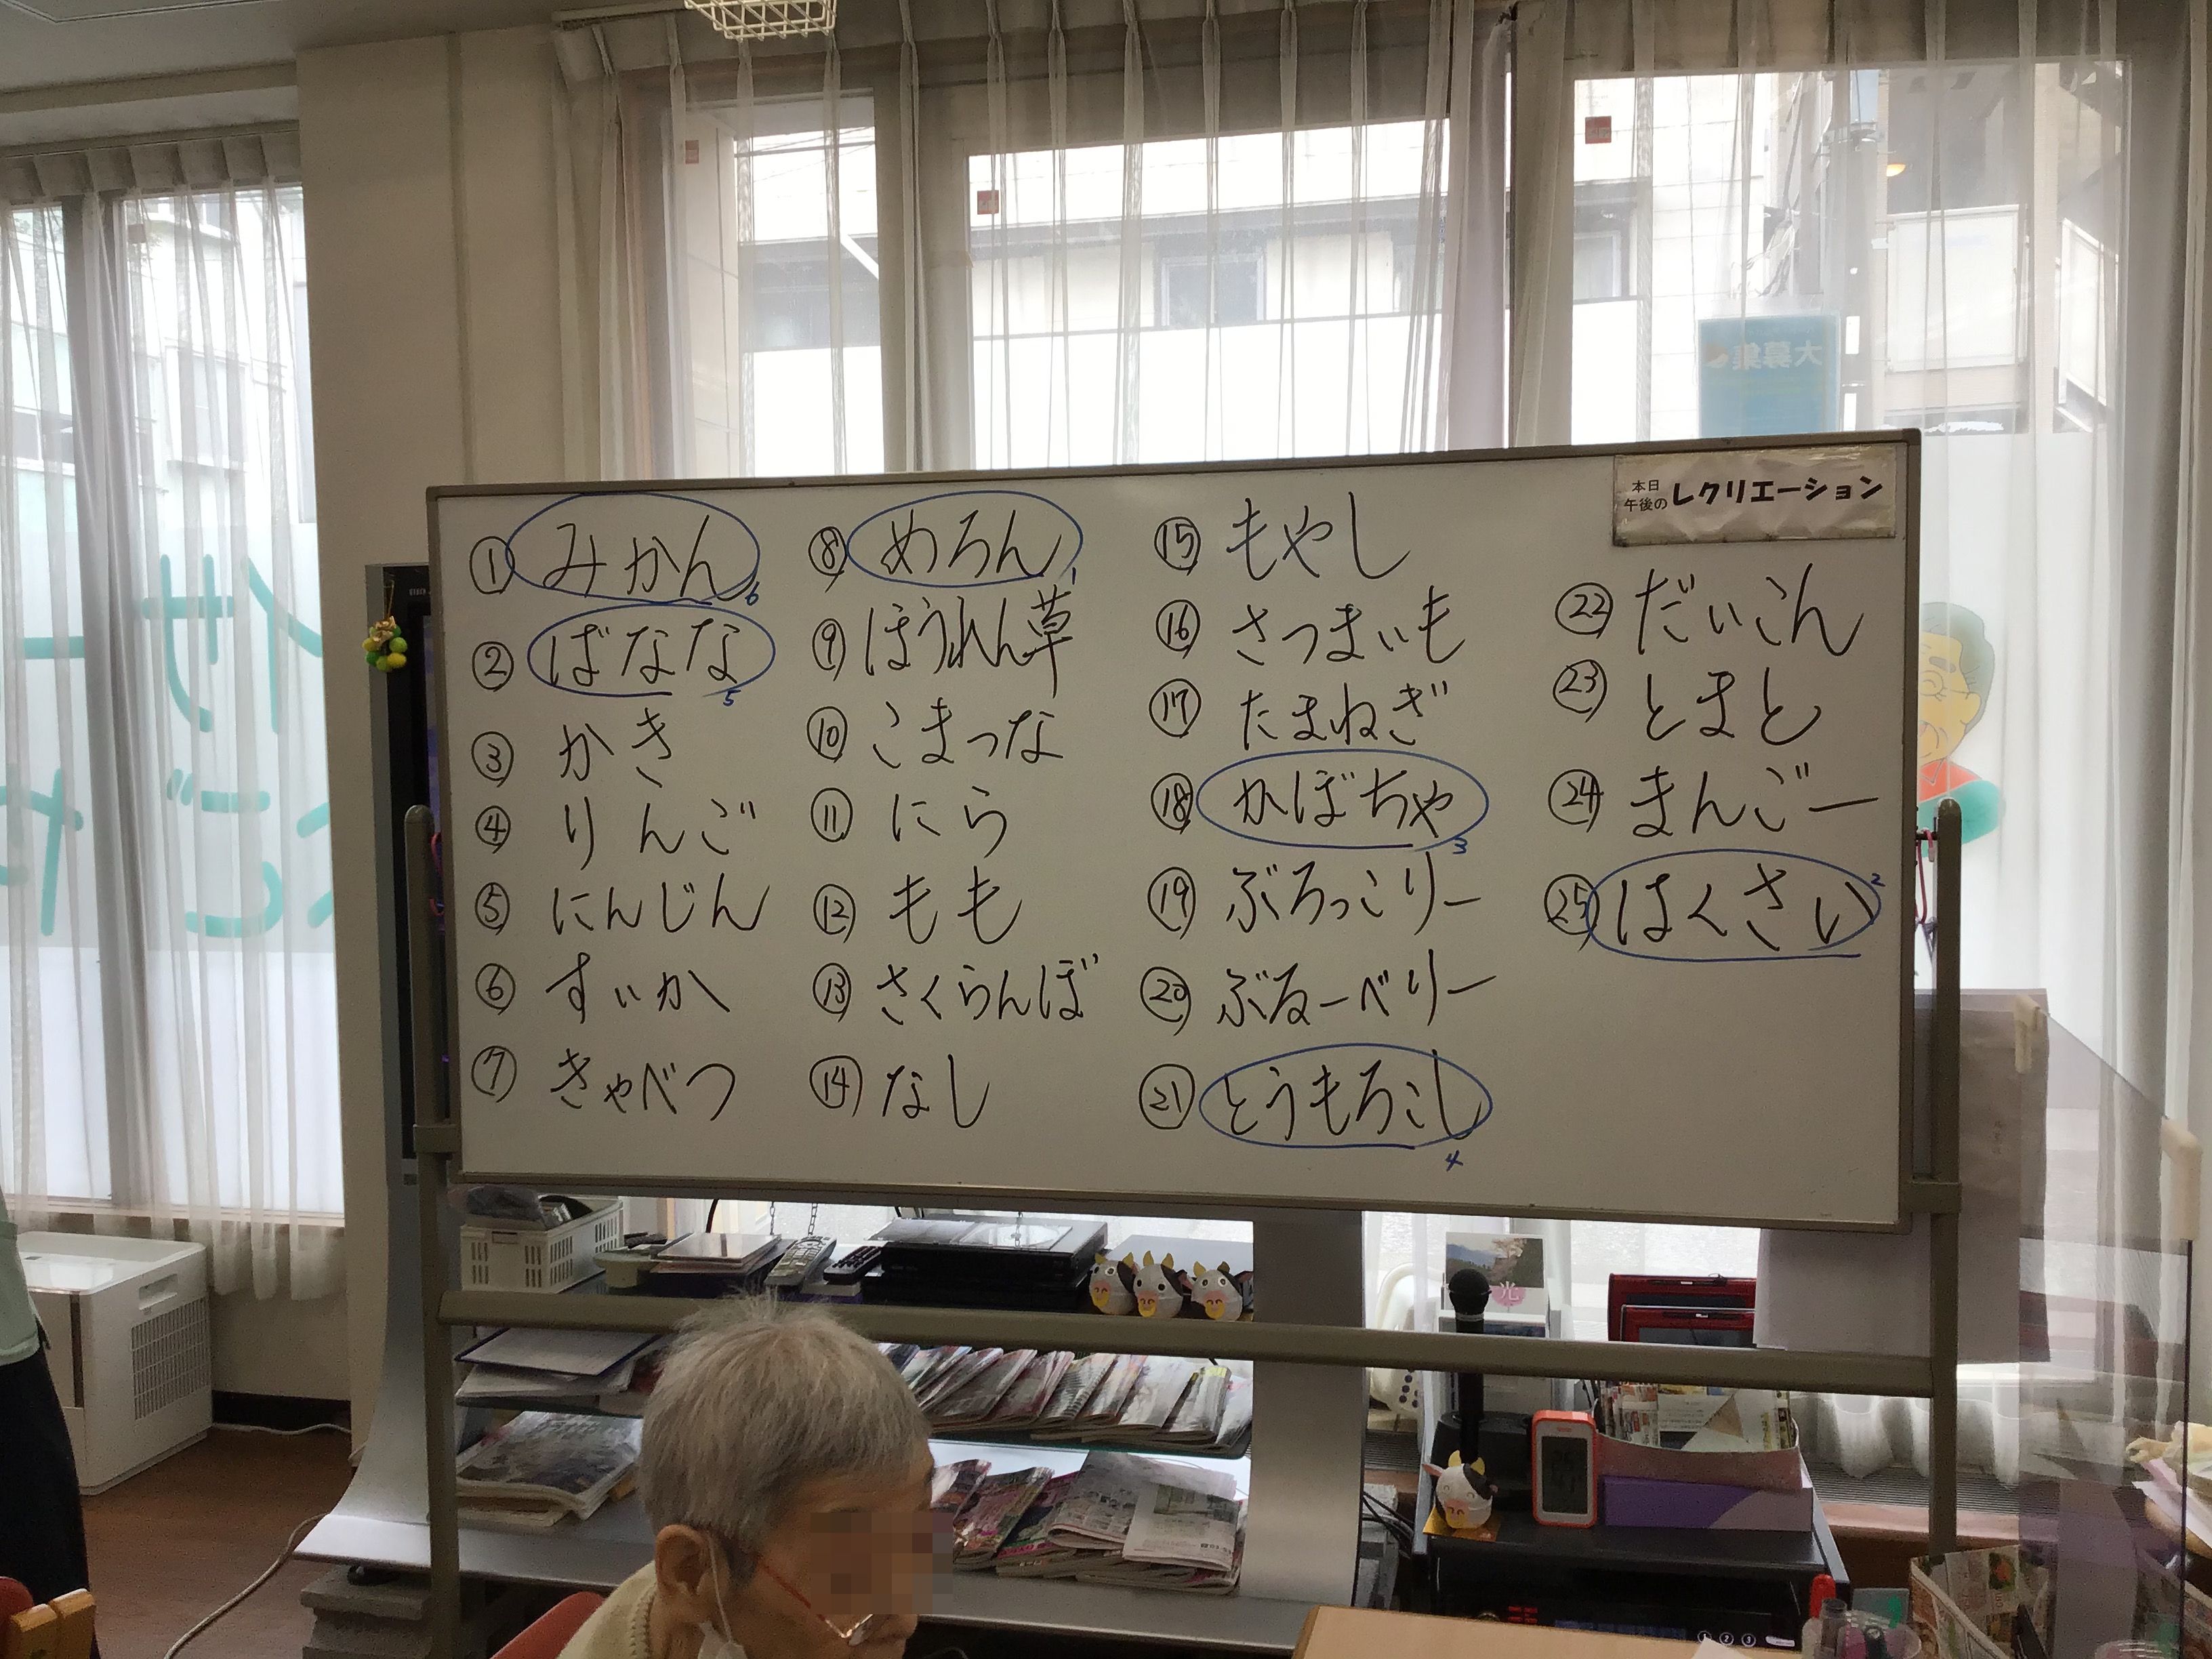 本日
午後の レクリエーション
① みかん 6
② ばなな 5
③ かき
④ りんご
⑤ にんじん
⑥ すいか
⑦ きゃべつ
⑧ めろん 1
⑨ ほうれん草
⑩ こまつな
⑪ にら
⑫ もも
⑬ さくらんぼ
⑭ なし
⑮ もやし
⑯ さつまいも
⑰ たまねぎ
⑱ かぼちゃ 3
⑲ ぶろっこりー
⑳ ぶるーべりー
㉑ とうもろこし 4
㉒ だいこん
㉓ とまと
㉔ まんごー
㉕ はくさい 2
大募集
光